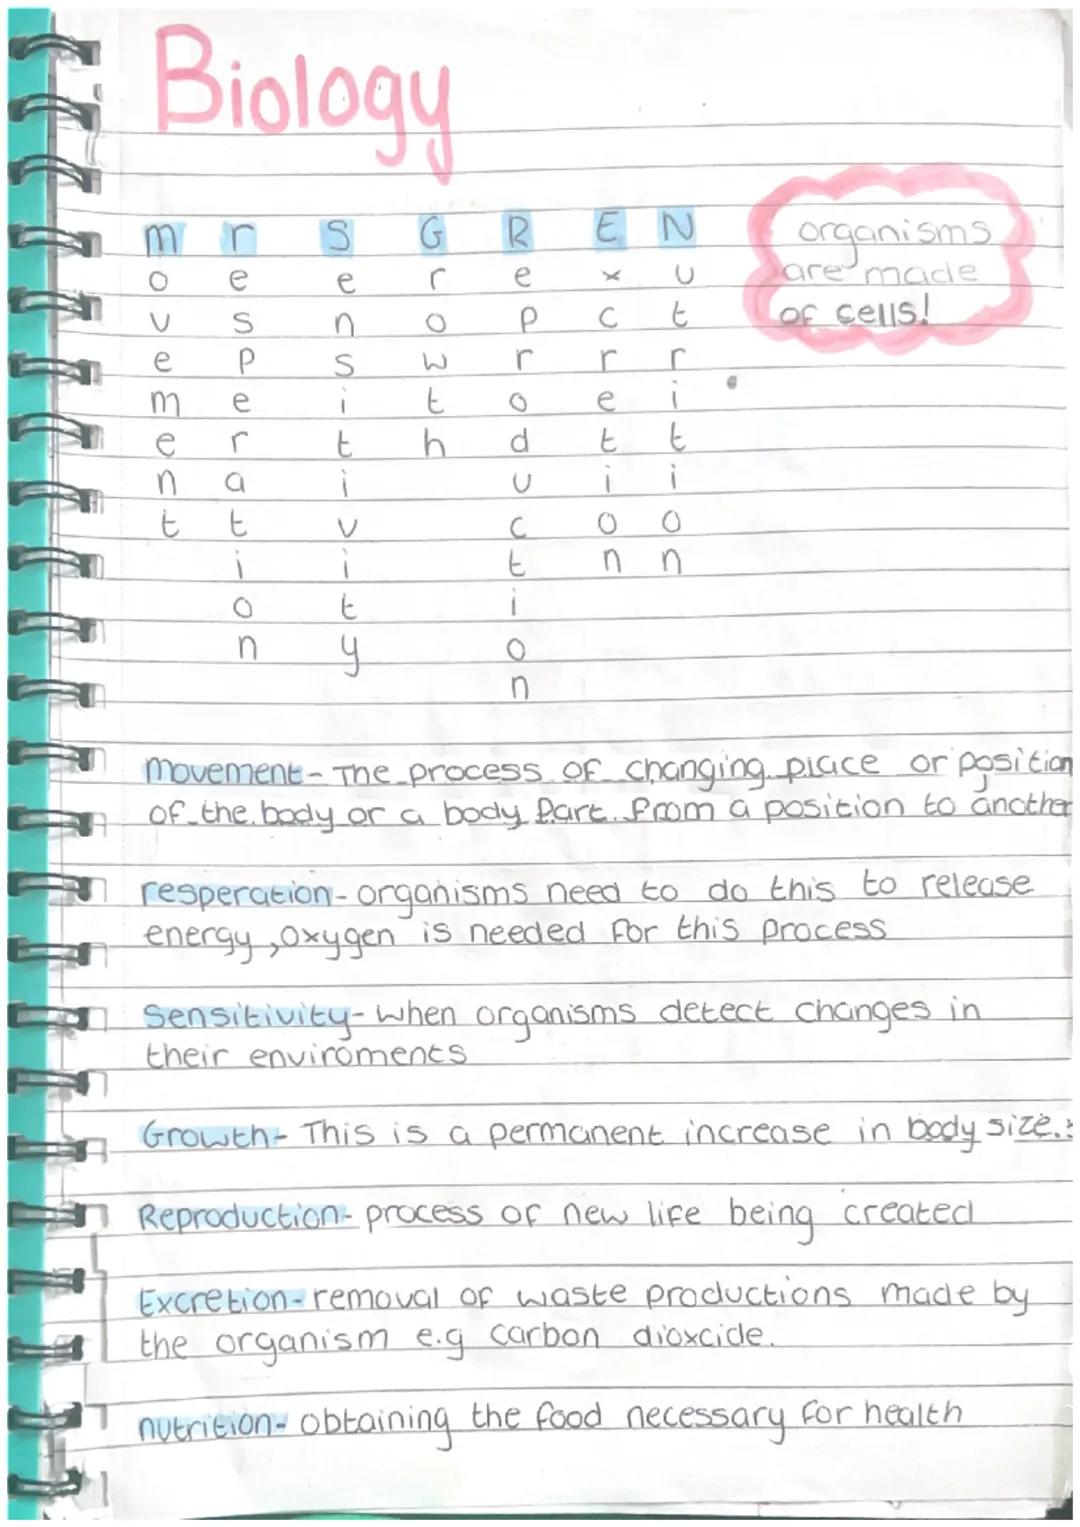 Biology
m r S G R E N
o e e r e x u
v s n o p c t
e p s w r r r
m e i t o e i
e r t h d t t
n a i u i i
t t v c o o
i i t n n
o t i
n y o
n
organisms
are made
of cells!
movement- The process of changing place or position
of the body or a body Part. from a position to another
resperation- organisms need to do this to release
energy, oxygen is needed for this process
Sensitivity- when organisms detect changes in
their enviroments
Growth- This is a permanent increase in body size.
Reproduction- process of new life being created
Excretion- removal of waste productions made by
the organism e.g carbon dioxcide.
nutrition- obtaining the food necessary for health